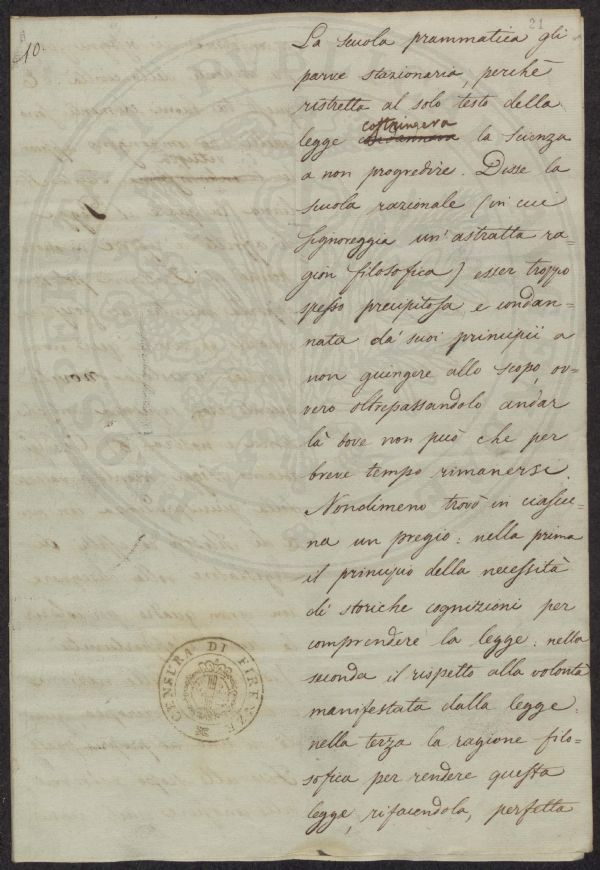 10.
21
La scuola prammatica gli
parve stazionaria, perchè
ristretta al solo testo della
legge costringeva la scienza
a non progredire. Disse la
scuola razionale (in cui
signoreggia un'astratta ra=
gion filosofica) esser troppo
spesso precipitosa e condan=
nata da' suoi principii a
non giungere allo scopo, ov=
vero oltrepassandolo andar
là dove non può che per
breve tempo rimanersi.
Nondimeno trovò in ciascu=
na un pregio: nella prima
il principio della necessità
di storiche cognizioni per
comprendere la legge: nella
seconda il rispetto alla volontà
manifestata dalla legge:
nella terza la ragione filo=
sofica per rendere questa
legge, rifacendola, perfetta
CENSURA DI FIRENZE